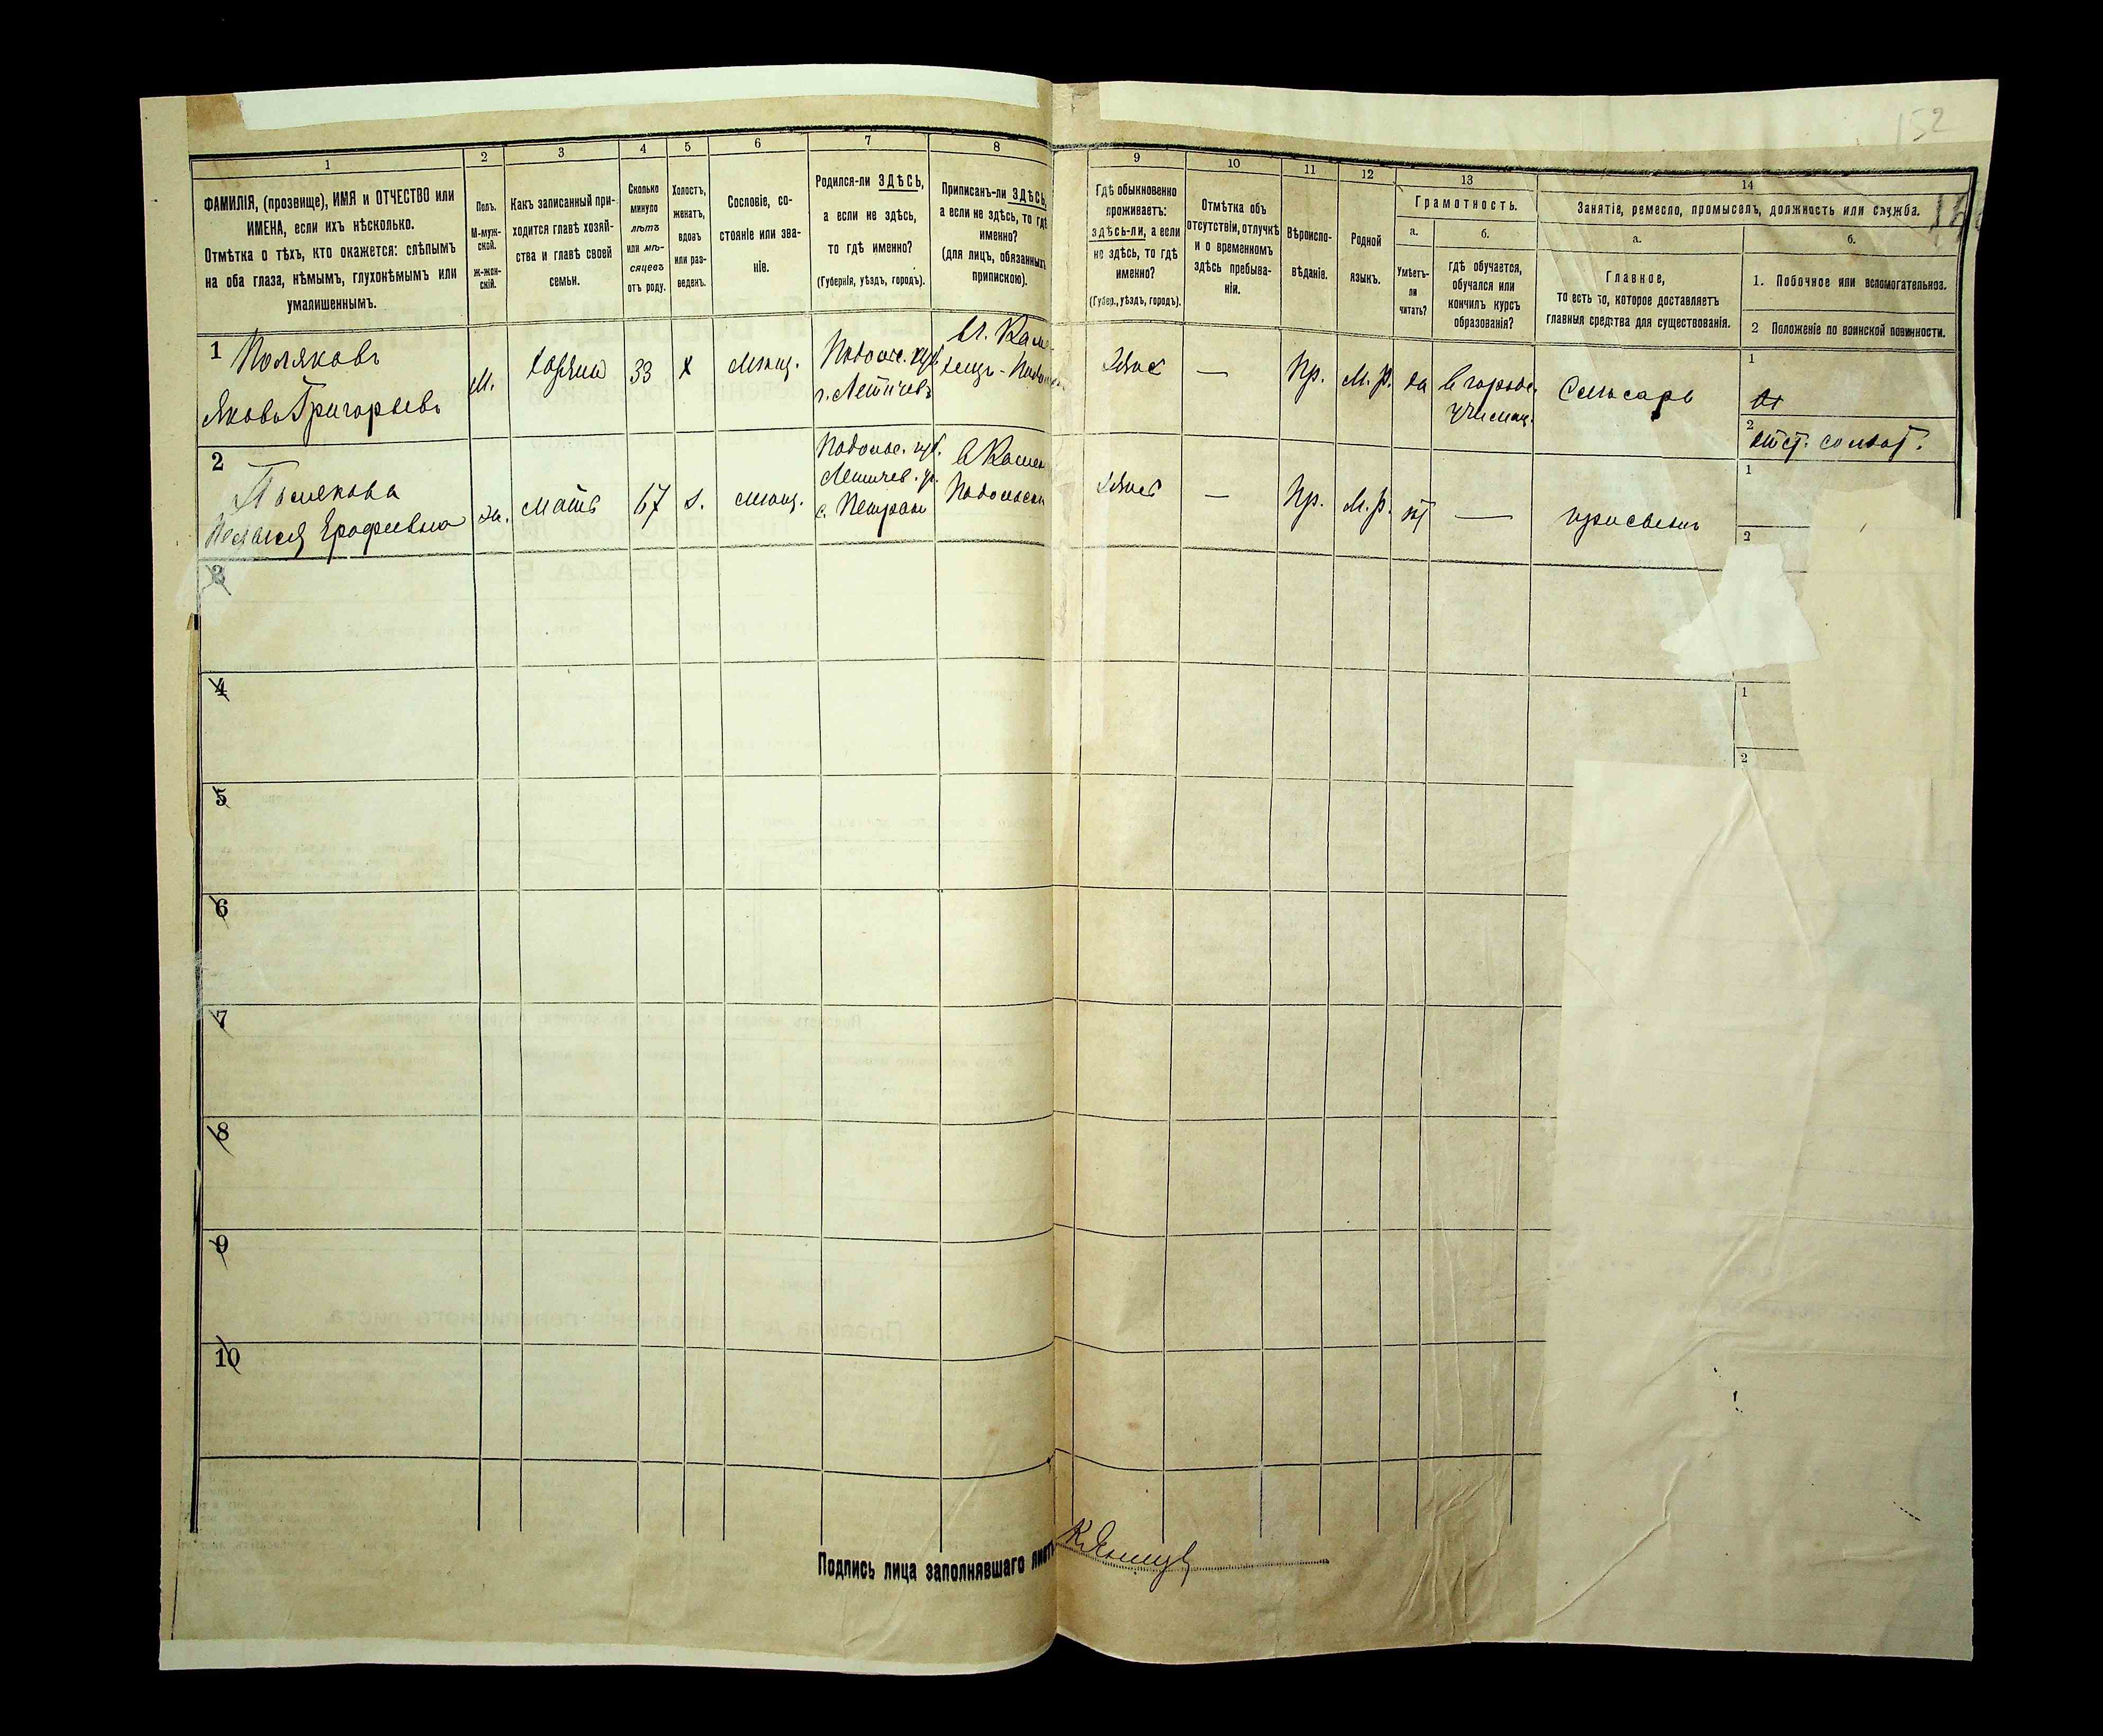 152
1
2
3
4
5
6
7
8
9
10
11
12
13
14
ФАМИЛІЯ, (прозвище), ИМЯ и ОТЧЕСТВО или
ИМЕНА, если ихъ нѣсколько.
Отмѣтка о тѣхъ, кто окажется: слѣпымъ
на оба глаза, нѣмымъ, глухонѣмымъ или
умалишеннымъ.
Полъ.
М-муж-
ской.
Ж-жен-
скій.
Какъ записанный при-
ходится главѣ хозяй-
ства и главѣ своей
семьи.
Сколько
минуло
лѣтъ
или мѣ-
сяцевъ
отъ роду.
Холостъ,
женатъ,
вдовъ
или раз-
веденъ.
Сословіе, со-
стояніе или зва-
ніе.
Родился-ли ЗДѢСЬ,
а если не здѣсь,
то гдѣ именно?
(Губернія, уѣздъ, городъ).
Приписанъ-ли ЗДѢСЬ,
а если не здѣсь, то гдѣ
именно?
(для лицъ, обязанныхъ
припискою).
Гдѣ обыкновенно
проживаетъ:
здѣсь-ли, а если
не здѣсь, то гдѣ
именно?
(Губер., уѣздъ, городъ).
Отмѣтка объ
отсутствіи, отлучкѣ
и о временномъ
здѣсь пребыва-
ніи.
Вѣроиспо-
вѣданіе.
Родной
языкъ.
Грамотность.
а.
Умѣетъ-
ли
читать?
б.
гдѣ обучается,
обучался или
кончилъ курсъ
образованія?
Занятіе, ремесло, промыселъ, должность или служба.
а.
Главное,
то есть то, которое доставляетъ
главныя средства для существованія.
б.
1. Побочное или вспомогательное.
2 Положеніе по воинской повинности.
1 Поляковъ
Яковъ Григорьевъ
М.
хозяинъ
33
х
мѣщ.
Подольс. губ.
г. Летичевъ
въ г. Каме-
нецъ-Подол
здѣсь
—
Пр.
М. р.
да
въ городс.
училищ.
Слѣсарь
1
2
отст. солдат.
2
Полякова
Ерофеевна
ж.
мать
67
в.
мѣщ.
Подольс. губ.
Летичев. у.
с.
въ Камен
Подольск
здѣсь
—
Пр.
М. р.
нѣт
—
при сынѣ
1
2
3
4
1
2
5
6
7
8
9
10
Подпись лица заполнявшаго листъ